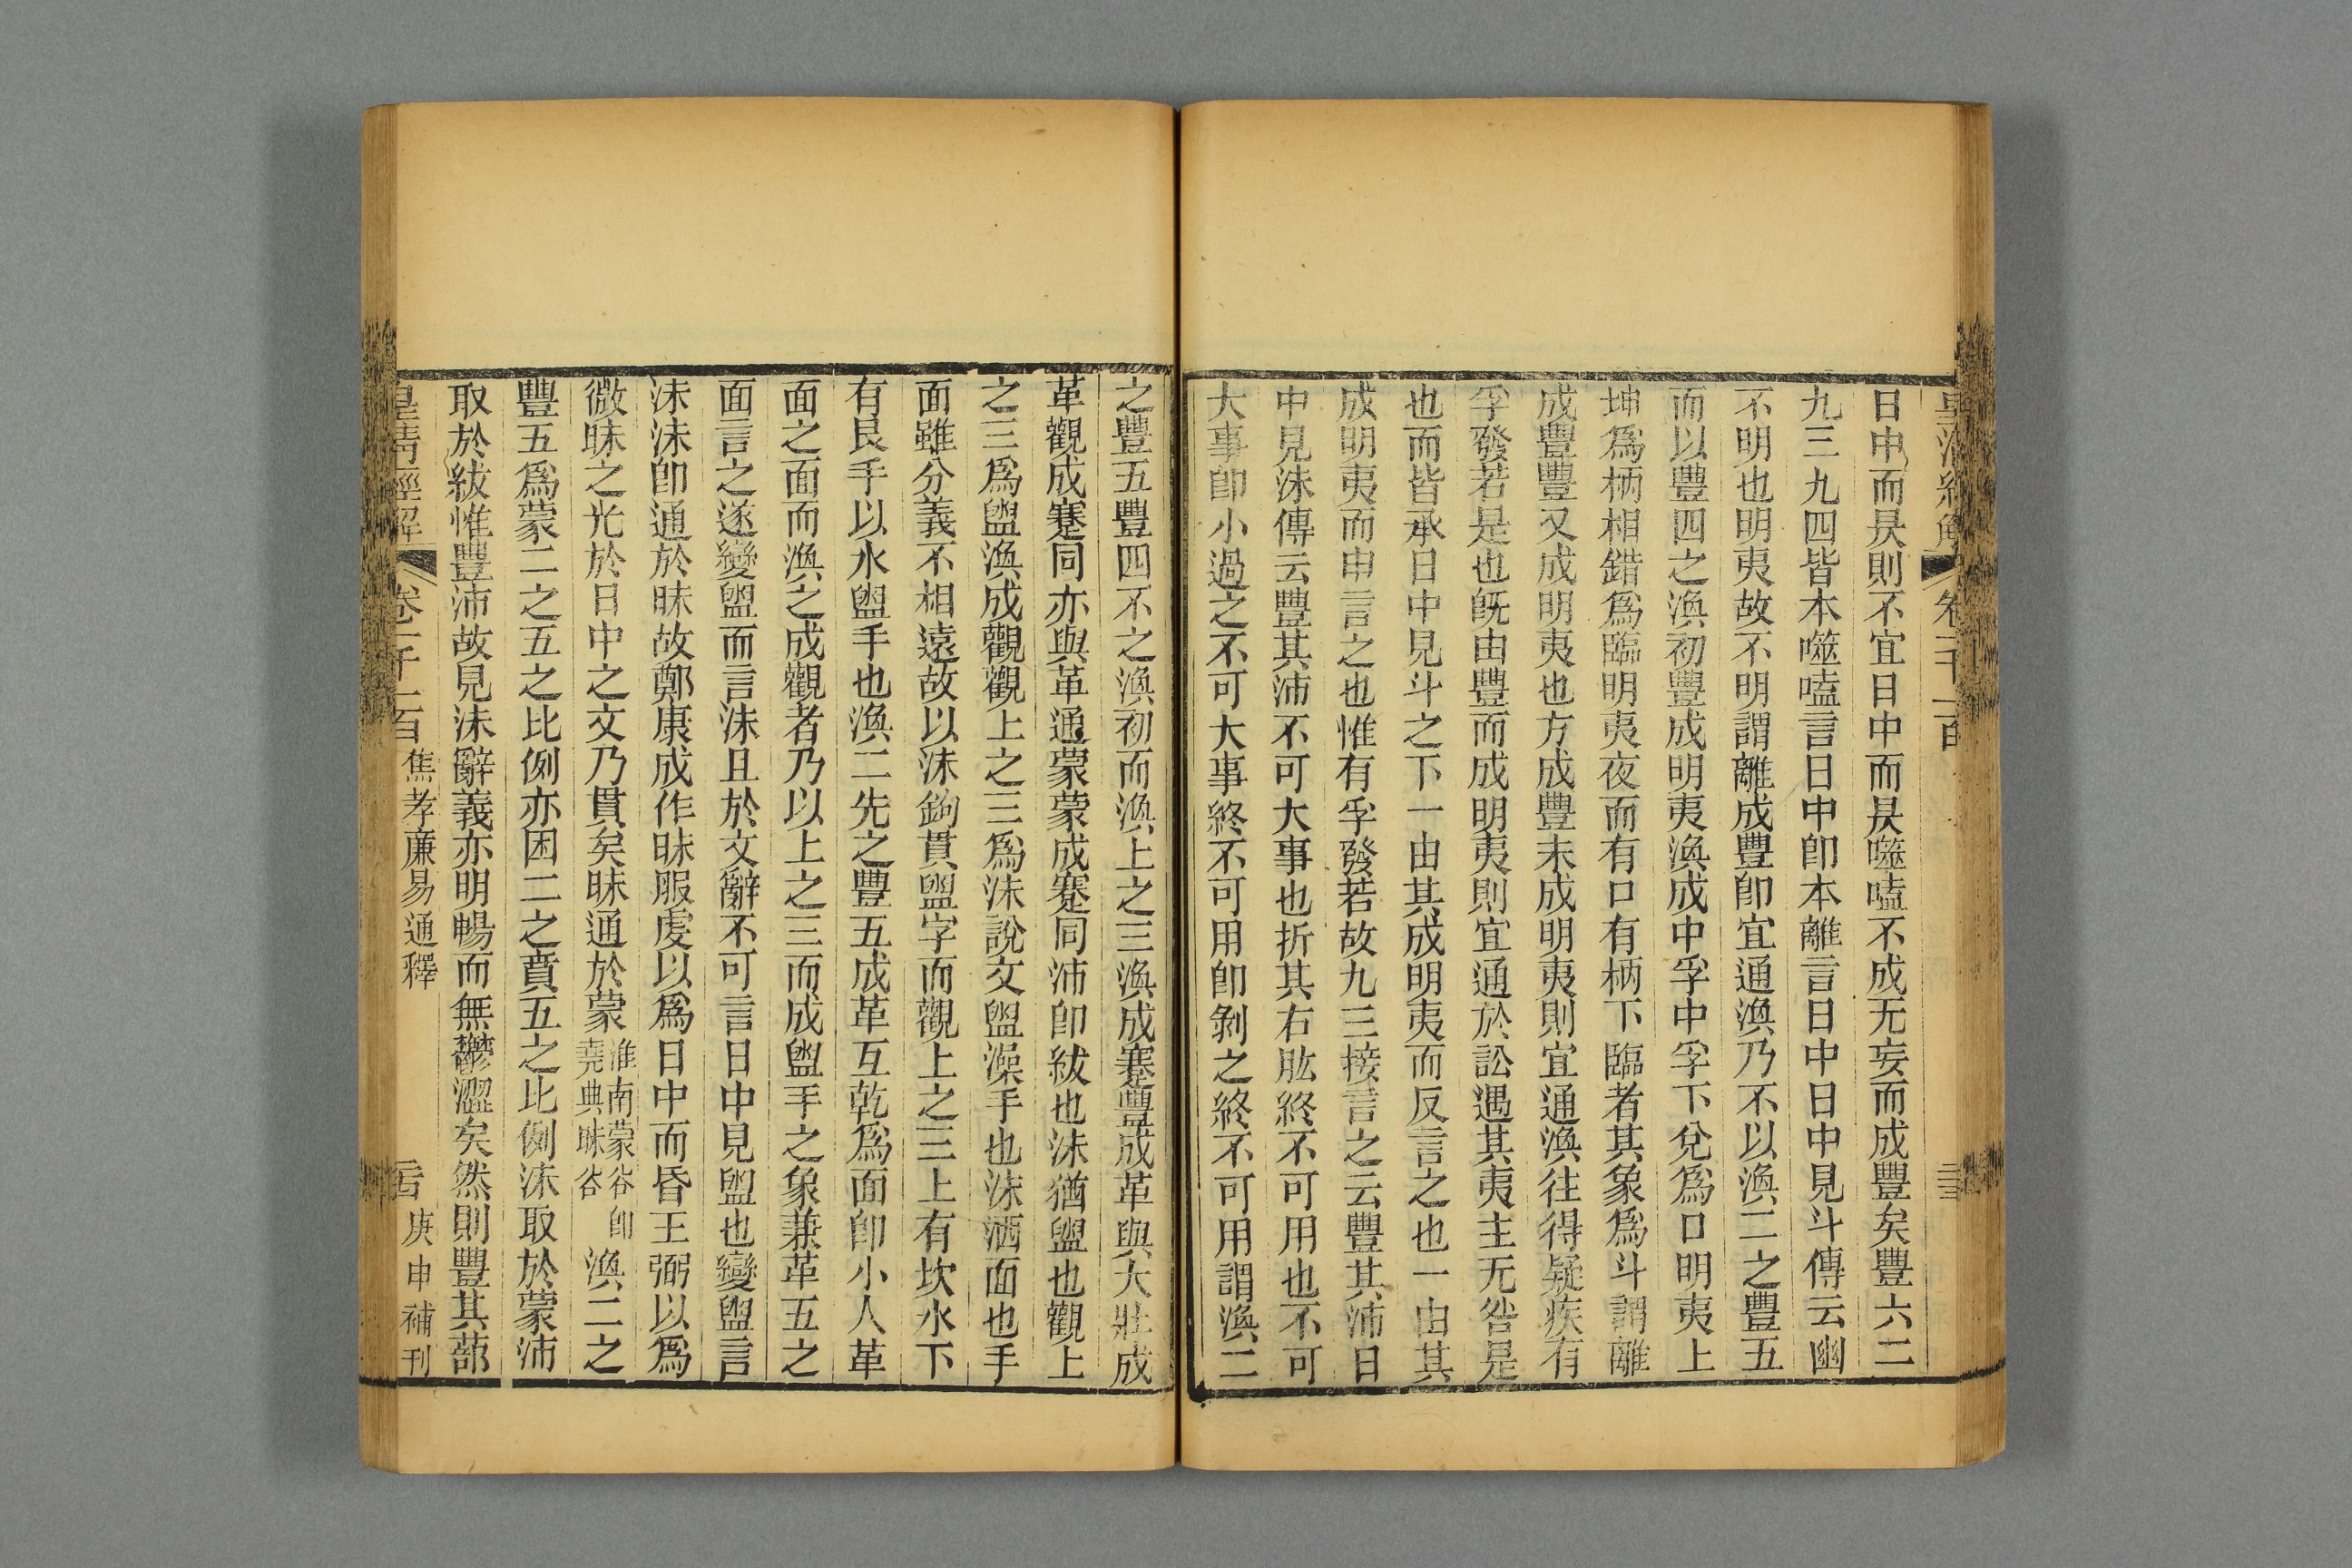 日中而昃則不宜日中而昃噬嗑不成无妄而成豐矣豐六二
九三九四皆本噬嗑言日中卽本離言日中日中見斗傳云幽
不明也明夷故不明謂離成豐卽宜通渙乃不以渙二之豐五
而以豐四之渙初豐成明夷渙成中孚中孚下兌爲口明夷上
坤爲柄相錯爲臨明夷夜而有口有柄下臨者其象爲斗謂離
成豐豐又成明夷也方成豐未成明夷則宜通渙往得疑疾有
孚發若是也旣由豐而成明夷則宜通於訟遇其夷主无咎是
也而皆承日中見斗之下一由其成明夷而反言之也一由其
成明夷而申言之也惟有孚發若故九三接言之云豐其沛日
中見沬傳云豐其沛不可大事也折其右肱終不可用也不可
大事卽小過之不可大事終不可用卽剝之終不可用謂渙二
之豐五豐四不之渙初而渙上之三渙成蹇豐成革與大壯成
革觀成蹇同亦與革通蒙蒙成蹇同沛卽紱也沬猶盥也觀上
之三爲盥渙成觀觀上之三爲沬說文盥澡手也沬洒面也手
面雖分義不相遠故以沬鉤貫盥字而觀上之三上有坎水下
有艮手以水盥手也渙二先之豐五成革互乾爲面卽小人革
面之面而渙之成觀者乃以上之三而成盥手之象兼革五之
面言之遂變盥而言沬且於文辭不可言日中見盥也變盥言
沬沬卽通於昧故鄭康成作昧服虔以爲日中而昏王弼以爲
微昧之光於日中之文乃貫矣昧通於蒙淮南蒙谷卽堯典昧谷渙二之
豐五爲蒙二之五之比例亦困二之賁五之比例沬取於蒙沛
取於紱惟豐沛故見沬辭義亦明暢而無鬱澀矣然則豐其蔀
皇清經解 卷一千一百 焦孝廉易通釋 庚申補刊